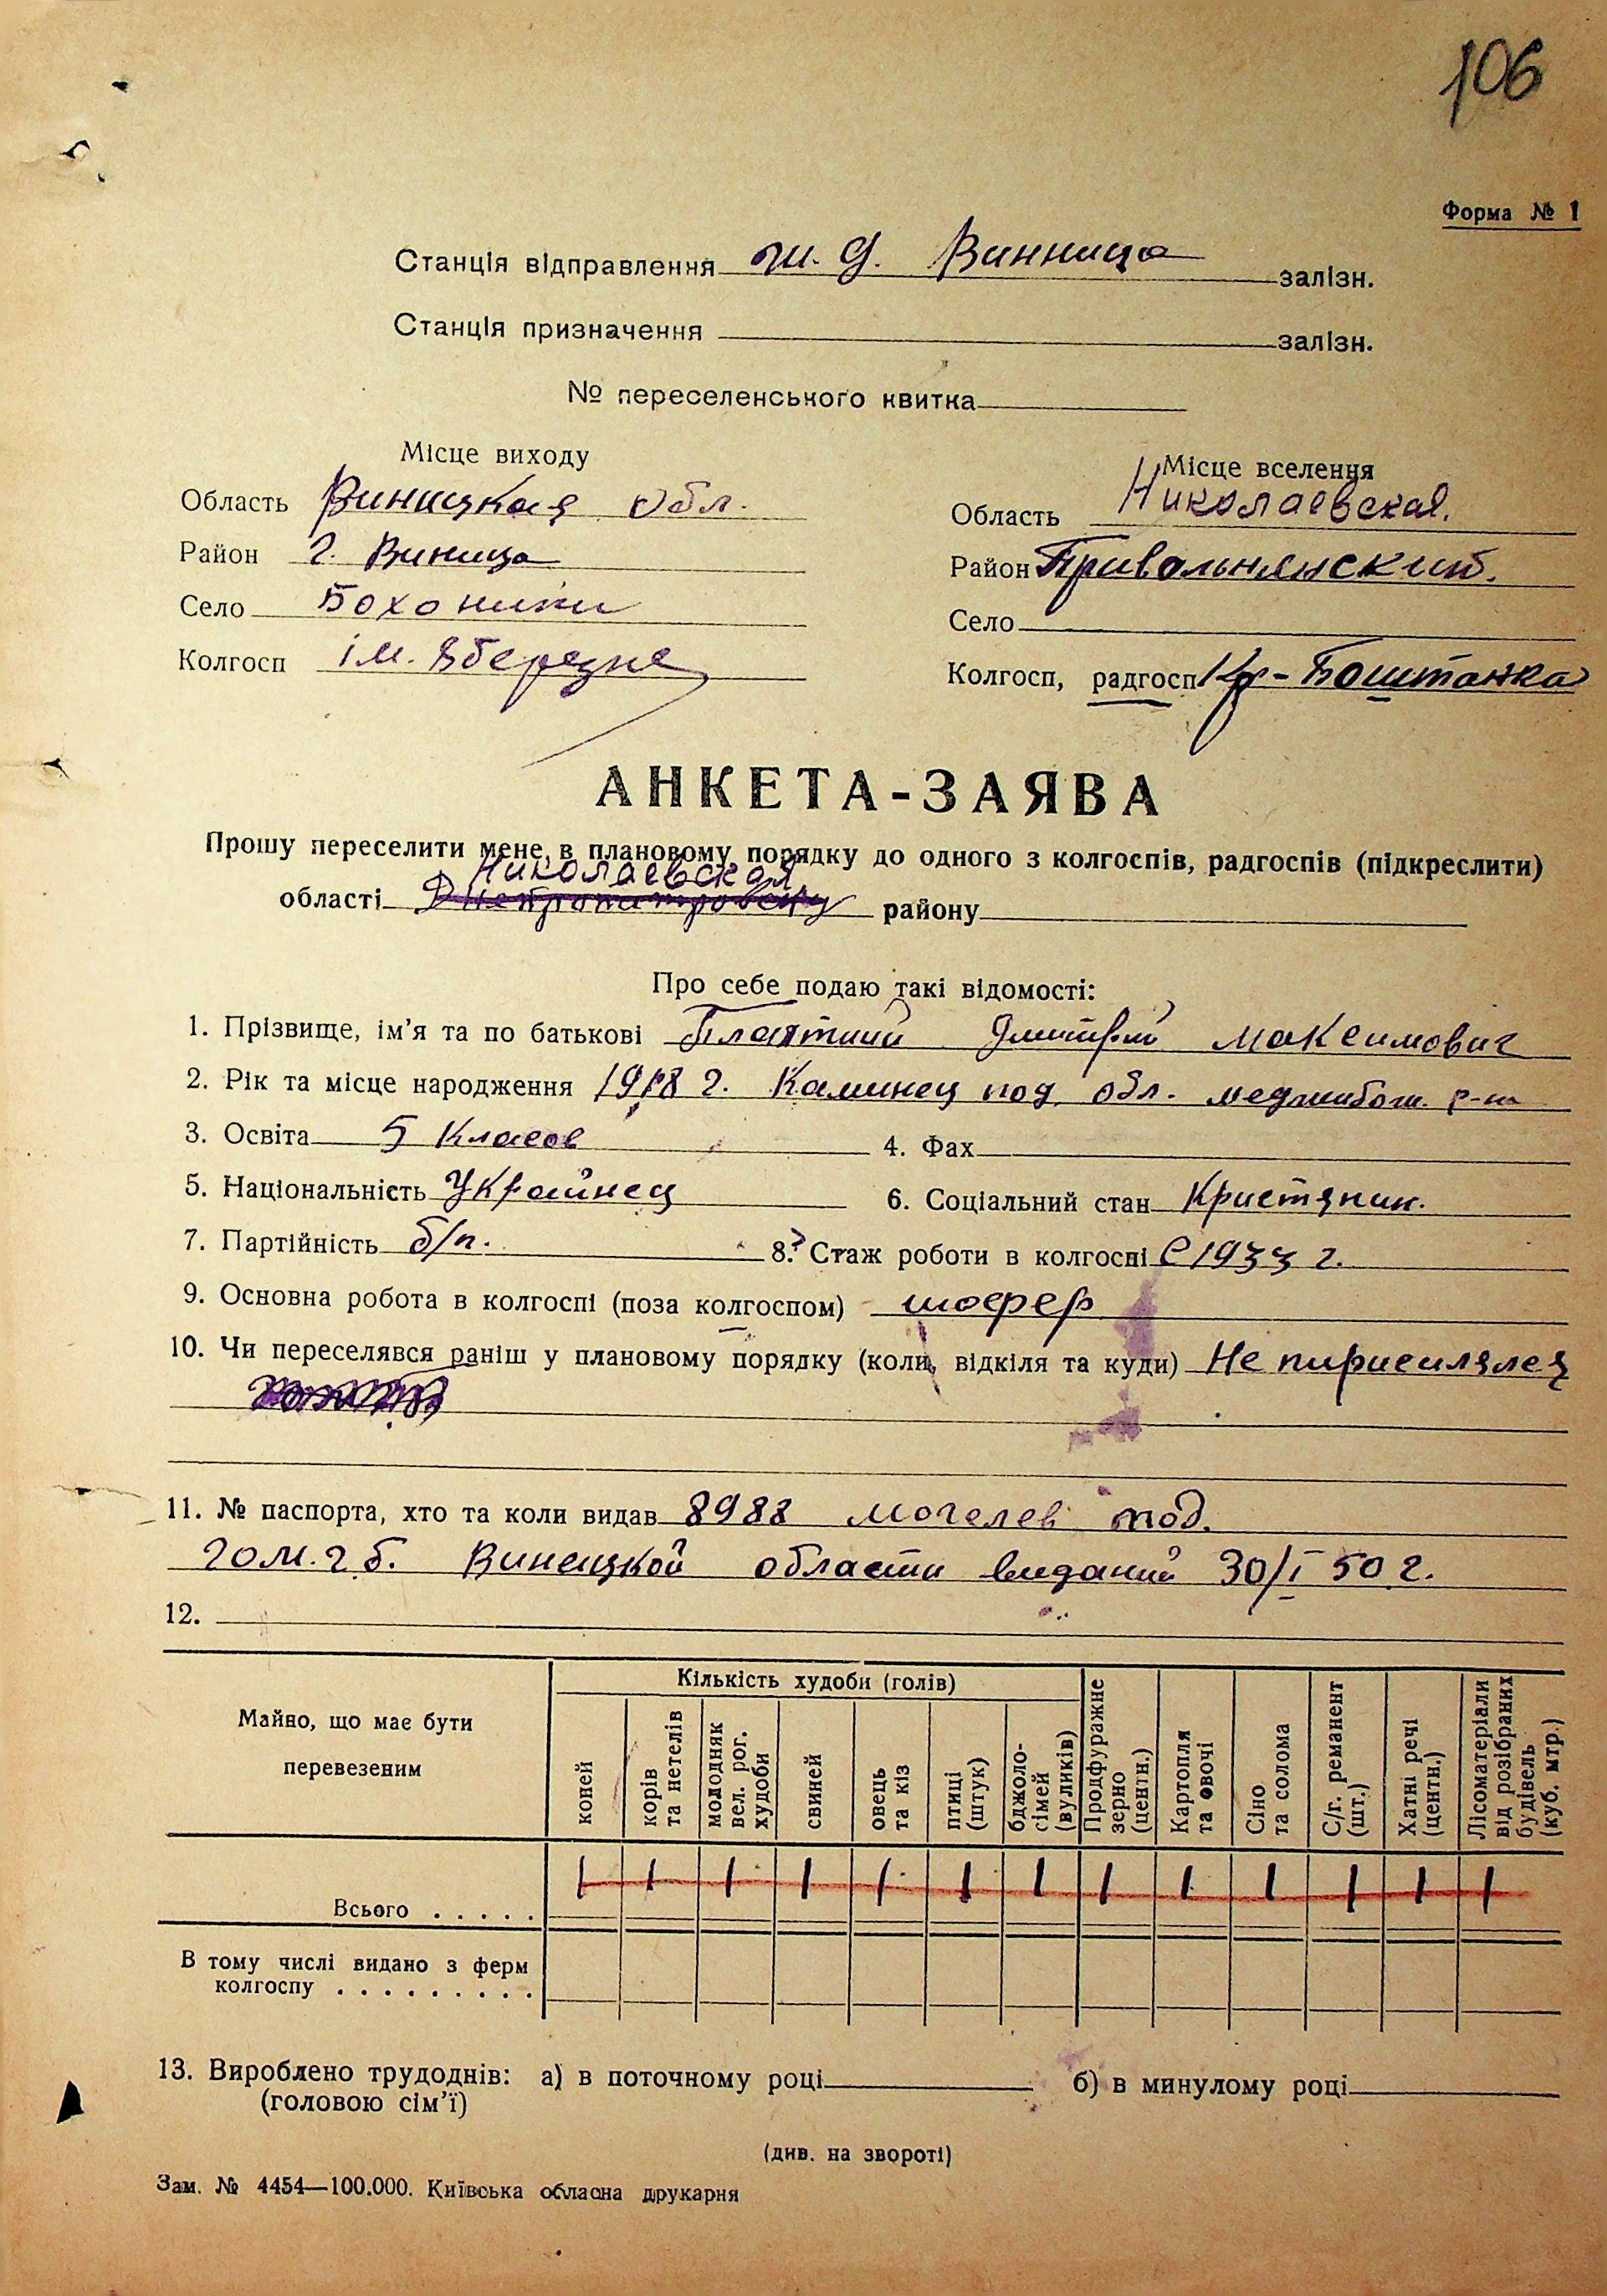 106
Форма № 1
Станція відправлення ж. д. Винница залізн.
Станція призначення залізн.
№ переселенського квитка
Місце виходу
Область Виницкая обл.
Район г. Виница
Село Бохоники
Колгосп ім. 8 березне
Місце вселення
Область Николаевская.
Район Привольнянский.
Село
Колгосп, радгосп Кр-Боштанка
АНКЕТА-ЗАЯВА
Прошу переселити мене в плановому порядку до одного з колгоспів, радгоспів (підкреслити)
Николаевская
області району
Про себе подаю такі відомості:
1. Прізвище, ім'я та по батькові Платтний Дмитрий Максимович
2. Рік та місце народження 1918 г. Каминец под. обл. меджибож. р-н
3. Освіта 5 Класов 4. Фах
5. Національність Украйнец 6. Соціальний стан Кристянин.
7. Партійність б/п. 8. Стаж роботи в колгоспі С 1933 г.
9. Основна робота в колгоспі (поза колгоспом) шофер
10. Чи переселявся раніш у плановому порядку (коли, відкіля та куди) Не пирисилялся
11. № паспорта, хто та коли видав 8988 могелев под.
гом. г б. Винецкой области виданий 30/I 50 г.
12.
Майно, що має бути перевезеним
Кількість худоби (голів)
коней
корів та нетелів
молодняк вел. рог. худоби
свиней
овець та кіз
птиці (штук)
бджоло-сімей (вуликів)
Продфуражне зерно (центн.)
Картопля та овочі
Сіно та солома
С/г. реманент (шт.)
Хатні речі (центн.)
Лісоматеріали від розібраних будівель (куб. мтр.)
Всього . . . . .
В тому числі видано з ферм
колгоспу . . . . . . . . .
13. Вироблено трудоднів: а) в поточному році б) в минулому році
(головою сім'ї)
(див. на звороті)
Зам. № 4454—100.000. Київська обласна друкарня